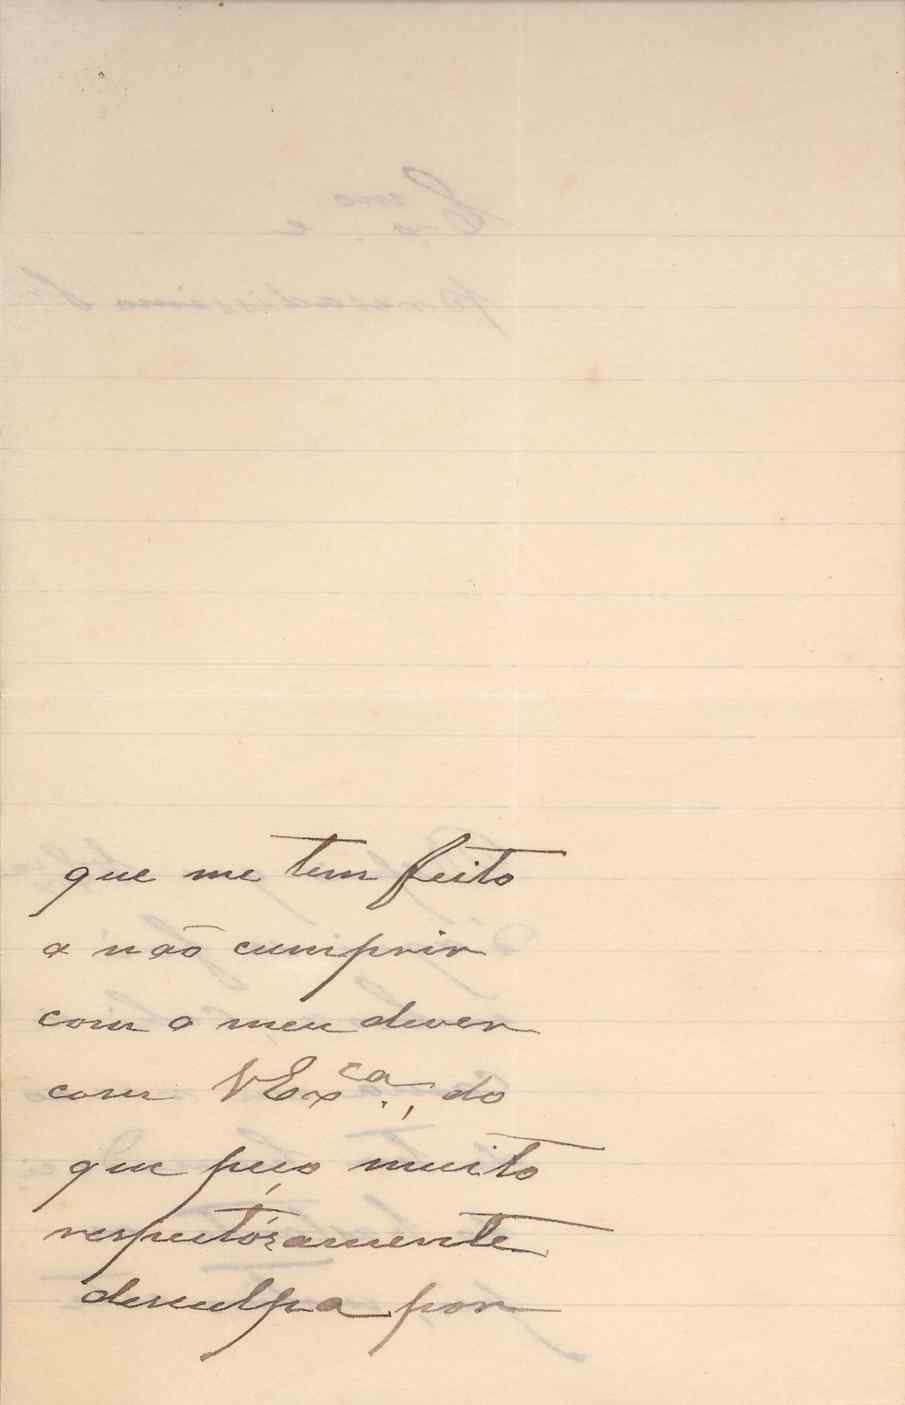 que me tem feito
a não cumprir
com o meu dever
com VEx.ca, do
que peço muito
respeitósamente
desculpa por